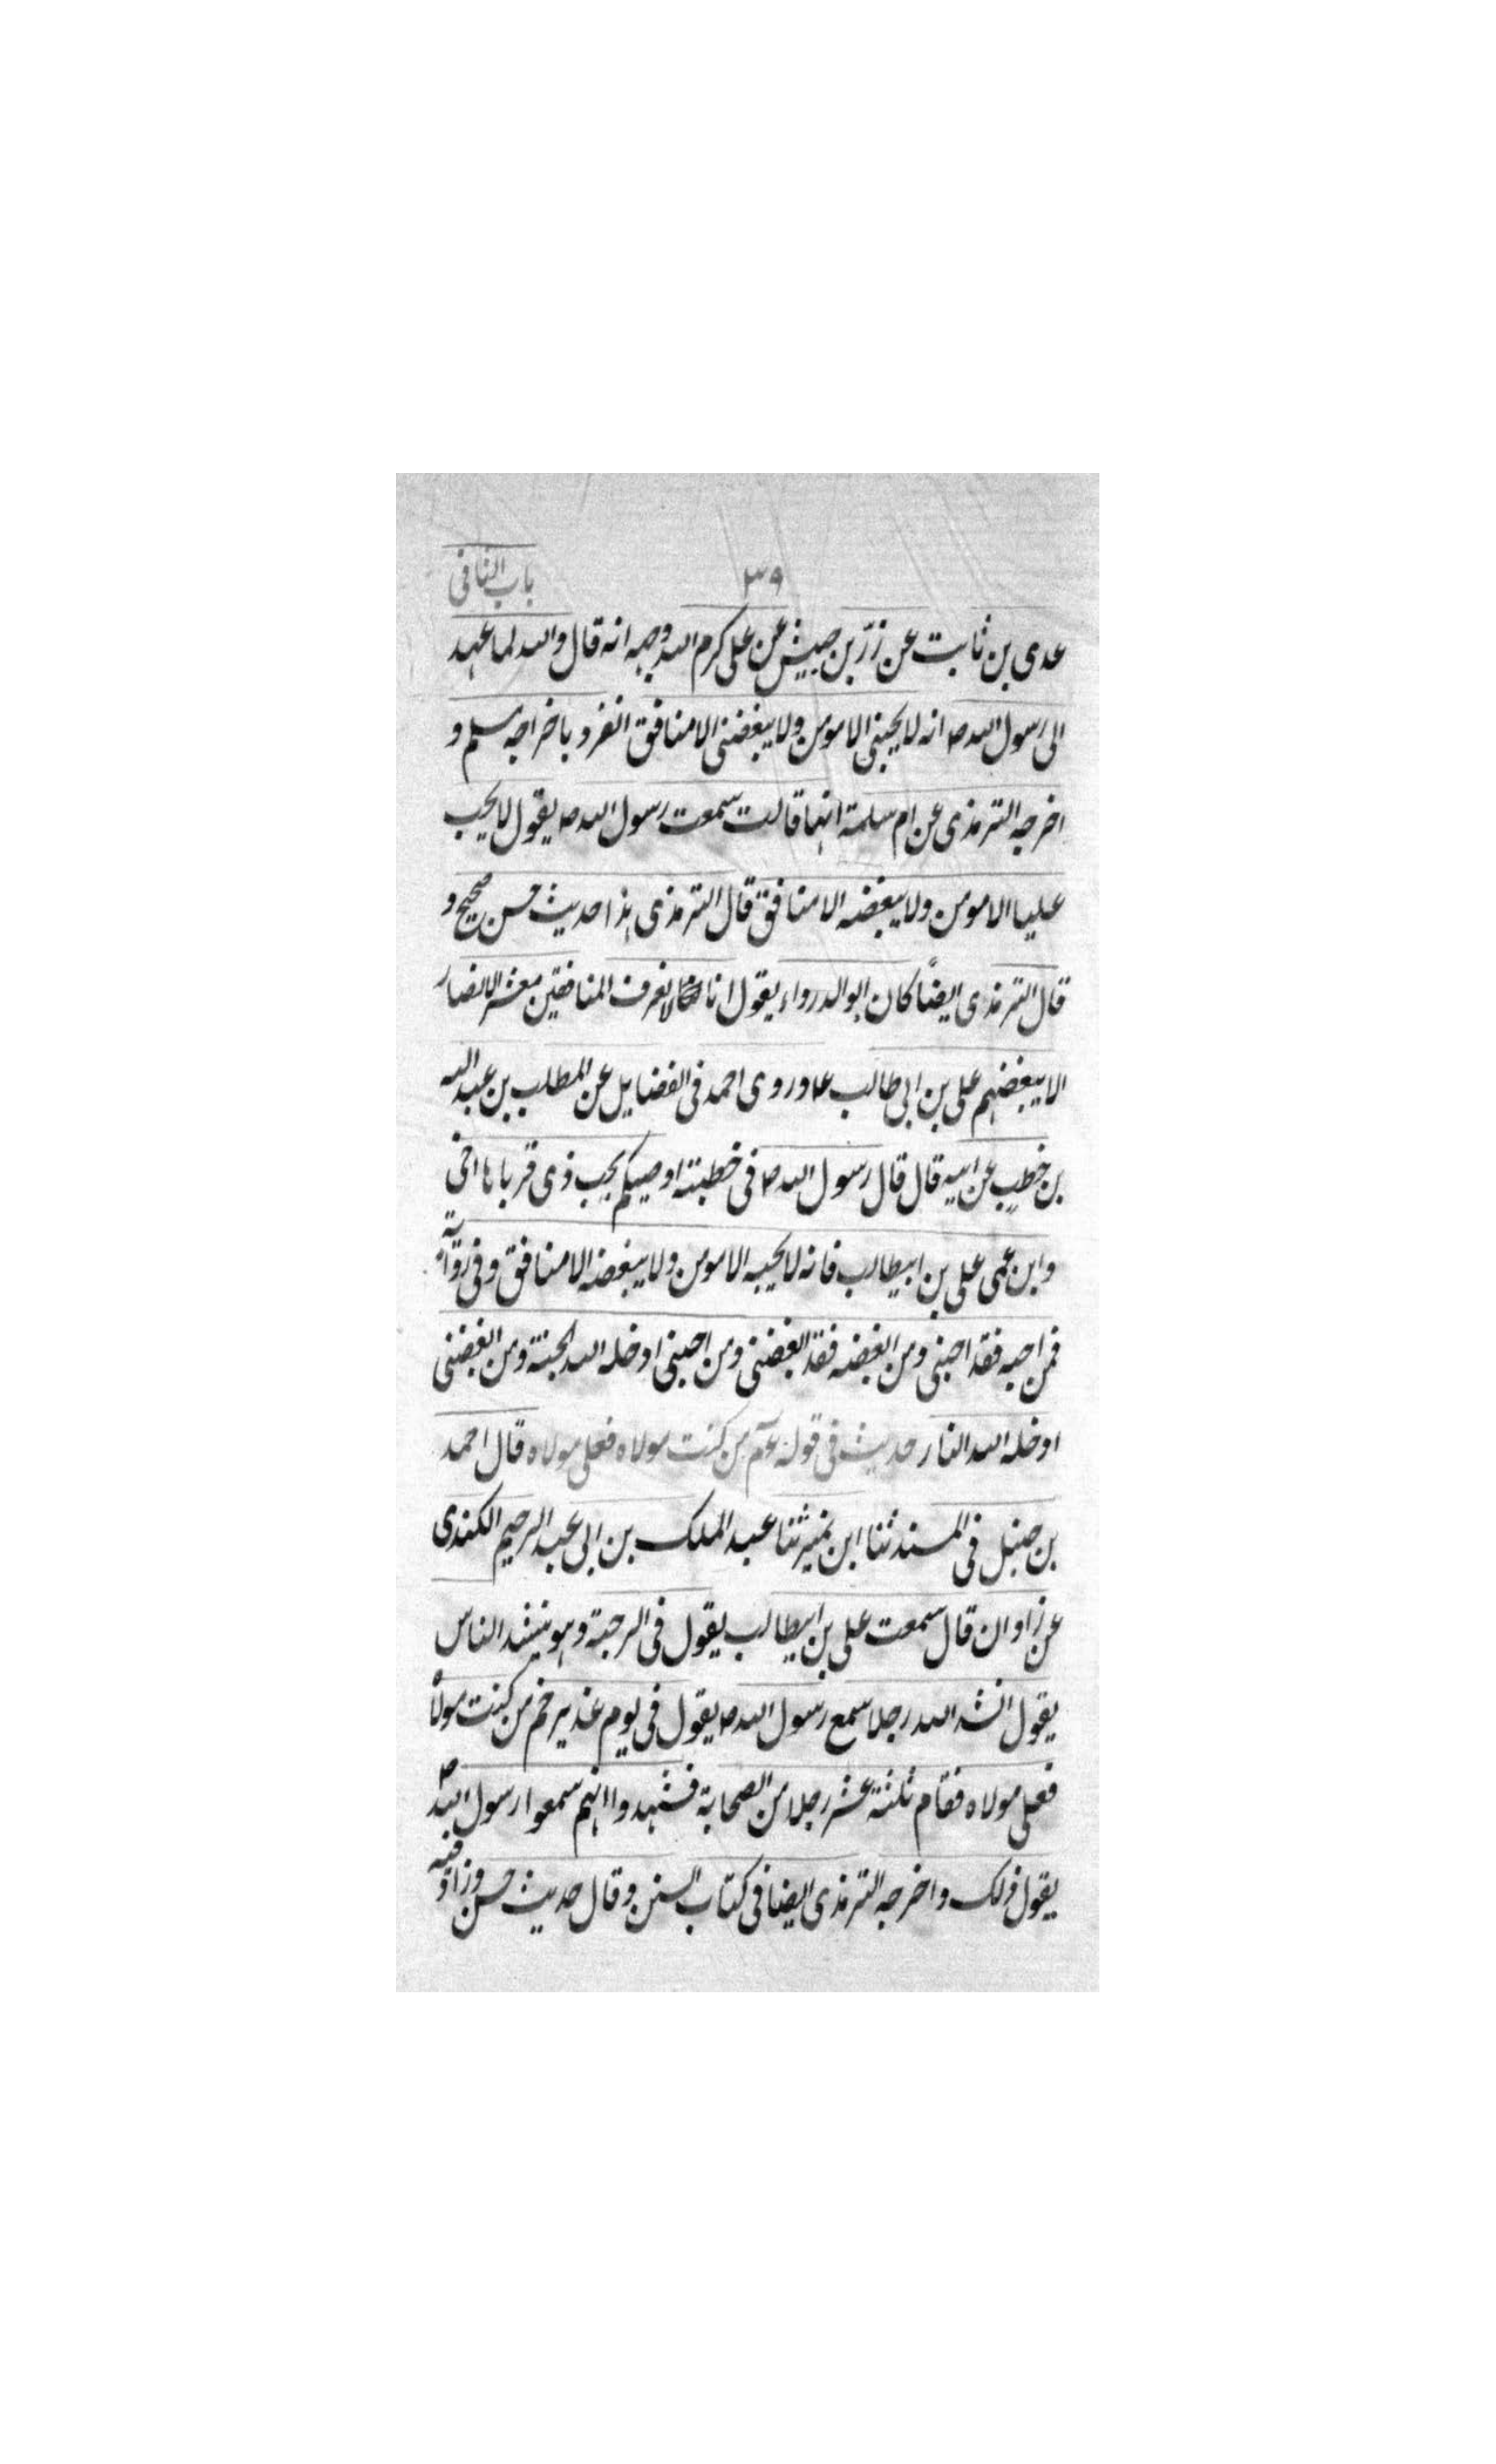 باب الثانى
٣٩
عدى بن ثابت عن زرّ بن حبيش عن على كرم الله وجهه انه قال والله لما عهد
الى رسول الله ص انه لا يحبنى الا مومن ولا يبغضنى الا منافق انفرد باخراجه مسلم و
اخرجه الترمذى عن ام سلمة انها قالت سمعت رسول الله ص يقول لا يحب
عليا الا مومن ولا يبغضه الا منافق قال الترمذى هذا حديث حسن صحيح و
قال الترمذى ايضاً كان ابو الدرداء يقول انا لا نعرف المنافقين معشر الانصار
الا يبغضهم على بن ابى طالب ع وروى احمد فى الفضايل عن المطلب بن عبد الله
بن خطب عن ابيه قال قال رسول الله ص فى خطبته اوصيكم بحب ذى قرباها اخى
وابن عمى على بن ابيطالب فانه لا يحبه الا مومن ولا يبغضه الا منافق وفى رواية
فمن احبه فقد احبنى ومن ابغضه فقد ابغضنى ومن احبنى ادخله الله الجنة ومن ابغضنى
ادخله الله النار حديث فى قوله عم من كنت مولاه فعلى مولاه قال احمد
بن حنبل فى المسند ثنا ابن نمير ثنا عبد الملك بن ابى عبد الرحيم الكندى
عن زاذان قال سمعت على بن ابيطالب يقول فى الرحبة وهو ينشد الناس
يقول انشد الله رجلا سمع رسول الله ص يقول فى يوم غدير خم من كنت مولاه
فعلى مولاه فقام ثلثة عشر رجلا من الصحابة فشهدوا انهم سمعوا رسول الله ص
يقول ذلك واخرجه الترمذى ايضا فى كتاب السنن وقال حديث حسن وزاد فيه